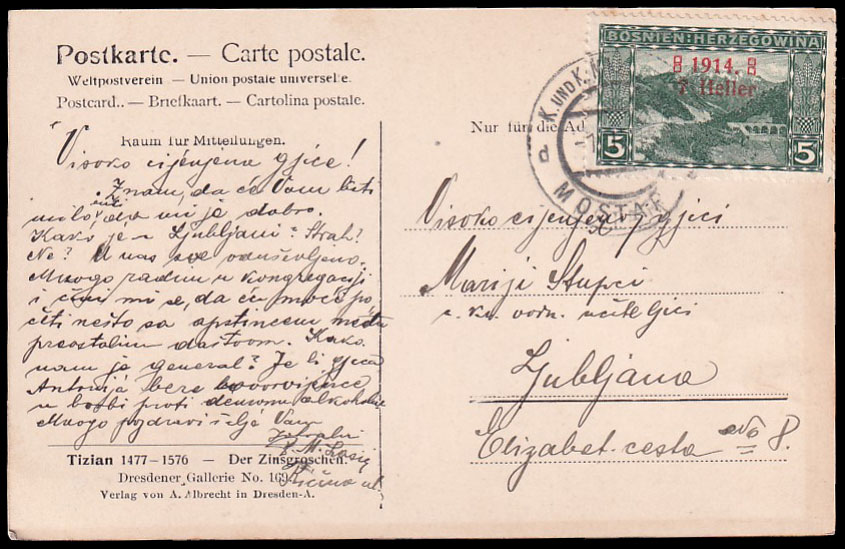 Postkarte. — Carte postale.
Weltpostverein — Union postale universelle.
Postcard.. — Briefkaart. — Cartolina postale.
Raum für Mitteilungen.
Visoko cijenjena gjice!
Znam, da će Vam biti
milo, da mi je dobro.
Kako je u Ljubljani? Strah?
Ne? U nas sve oduševljeno.
Mnogo radim u kongregaciji
i čini mi se, da ću moći po
četi nešto sa
Kako
nam je general? Je li gjica
Antonija bere
u borbi proti demonu alkohola
Mnogo pozdravi šelje Vam
Tizian 1477–1576 — Der Zinsgroschen.
Dresdener Gallerie No. 169.
Verlag von A. Albrecht in Dresden-A.
BOSNIEN:HERZEGOWINA
1914.
7 Heller
5 5
K. UND K. M
MOSTAR
Nur für die Ad
Visoko cijenjenoj gjici
Mariji Stupci
c. kr. vadn. učiteljici
Ljubljana
Elizabet. cesta No 8.